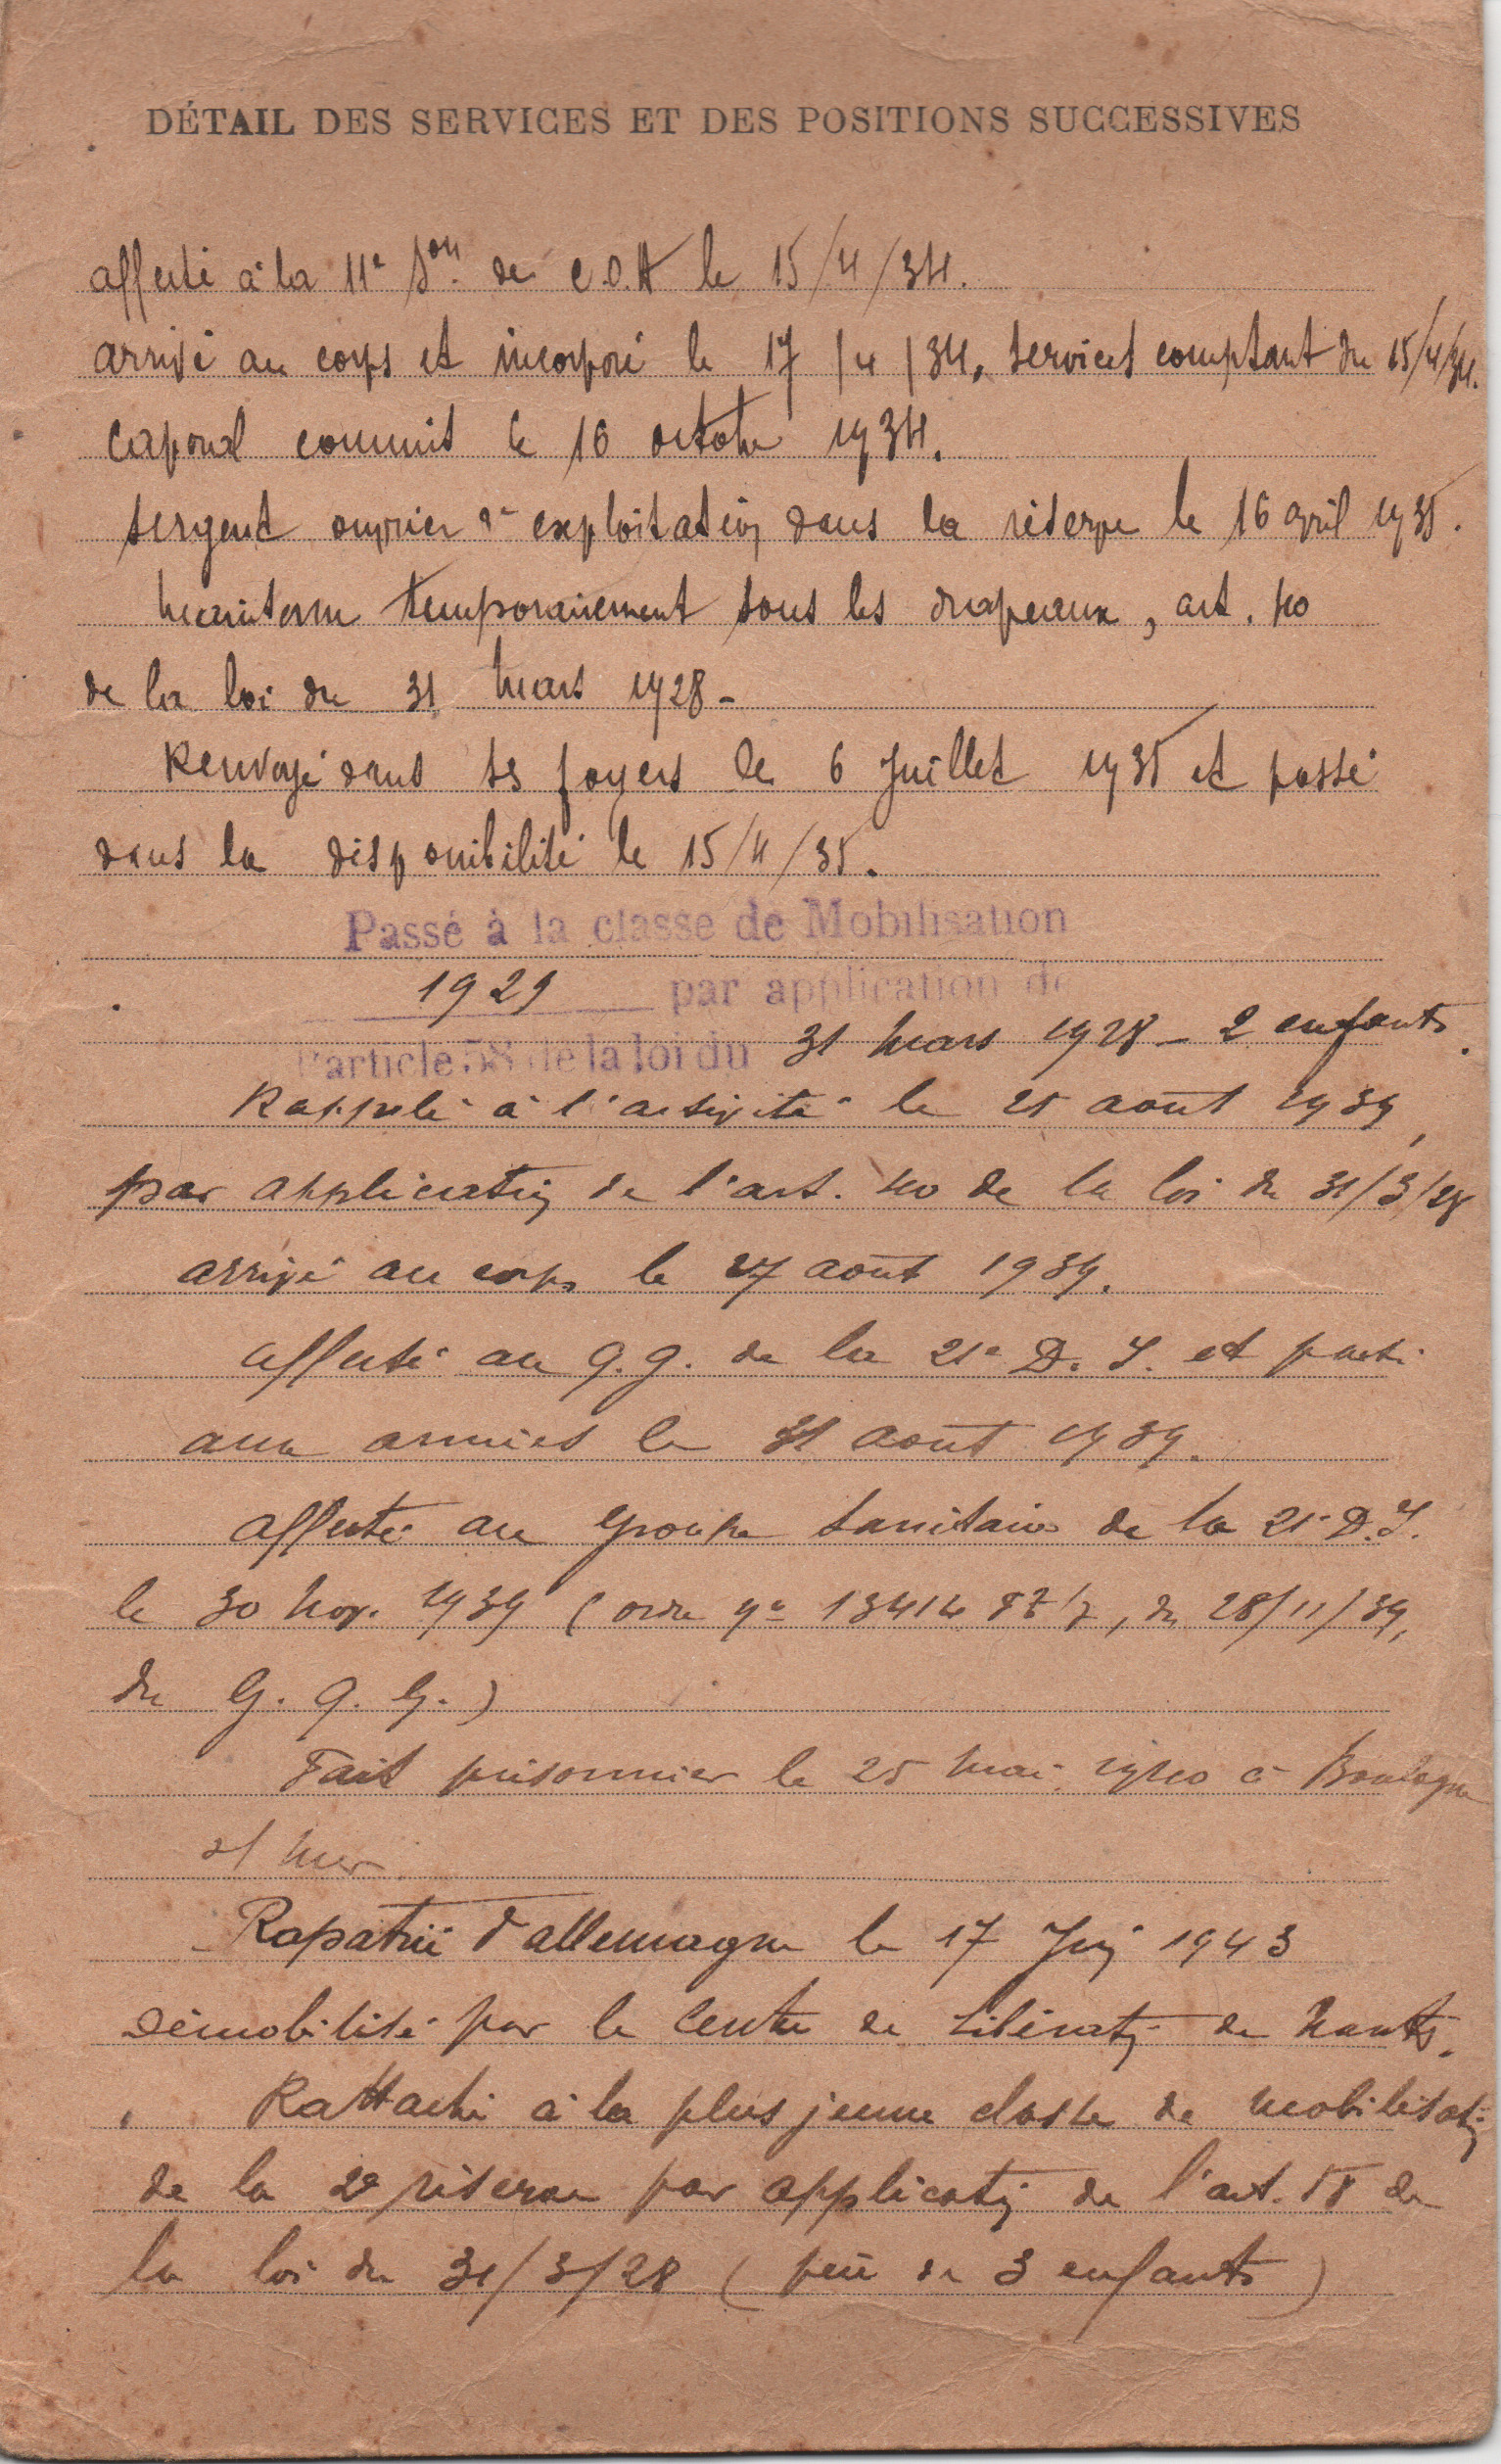 DÉTAIL DES SERVICES ET DES POSITIONS SUCCESSIVES
affecté à la 11e Son de C.O.A le 15/4/34.
arrivé au corps et incorporé le 17/4/34, services comptant du 15/4/34.
Caporal commis le 16 octobre 1934.
sergent ouvrier d'exploitation dans la réserve le 16 avril 1935.
Maintenu temporairement sous les drapeaux, art. 40
de la loi du 31 Mars 1928-
Renvoyé dans ses foyers le 6 Juillet 1935 et passé
dans la disponibilité le 15/4/35.
Passé à la classe de Mobilisation
1929 par application de
l'article 58 de la loi du 31 Mars 1928 - 2 enfants.
Rappelé à l'activité le 25 août 1939,
par application de l'art. 40 de la loi du 31/3/28
arrivé au corps le 27 août 1939.
affecté au Q.G. de la 21e D.I. et parti
aux armées le 31 août 1939.
affecté au groupe sanitaire de la 21e D.I.
le 30 Nov. 1939 (ordre no 13414, du 28/11/39,
du G.Q.G.)
Fait prisonnier le 25 Mai 1940 à Boulogne
s/ Mer
Rapatrié d'allemagne le 17 Juin 1943
Démobilisé par le Centre de Libération de Nantes.
Rattaché à la plus jeune classe de mobilisation
de la 2e réserve par application de l'art. 58 de
la loi du 31/3/28 (père de 3 enfants)